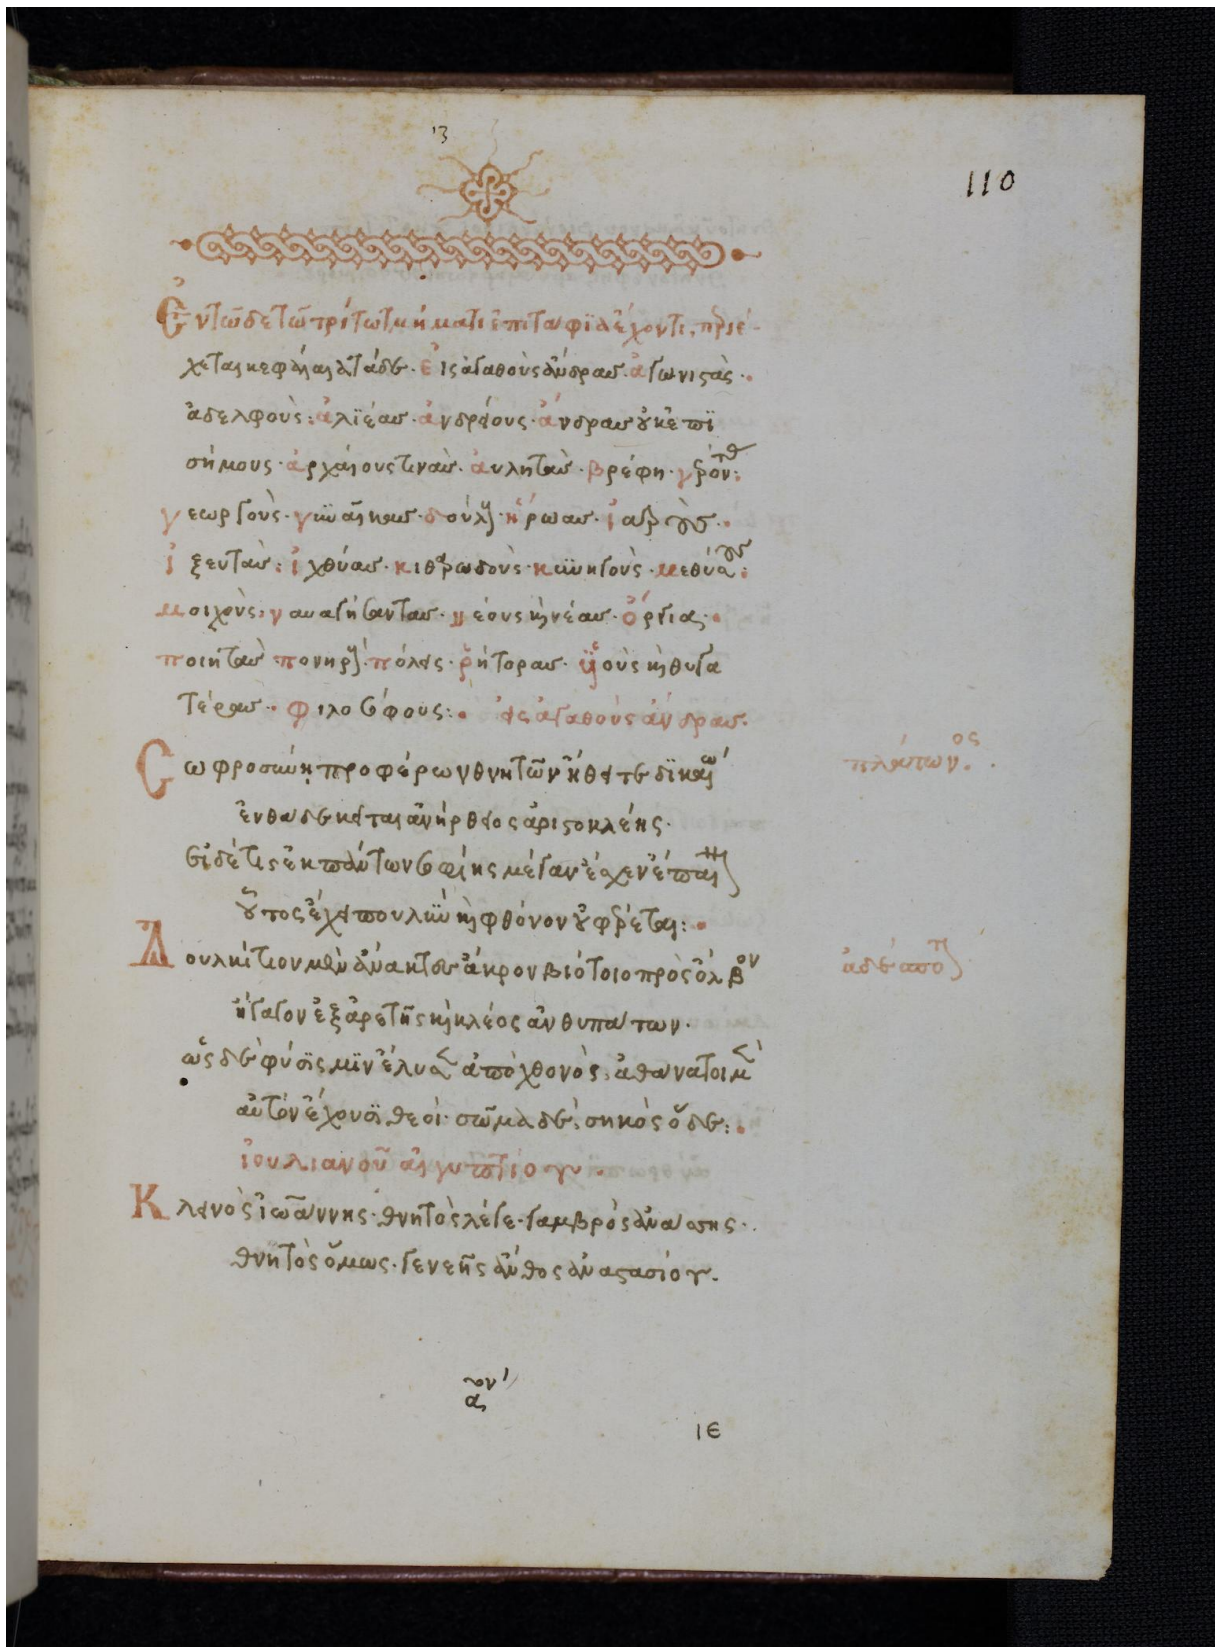 110
Ἐν τῶδε τῶ τρίτω τμήματι ἐπιτάφια ἔχοντι, περιέ-
χεται κεφάλαια τάδε· εἰς ἀγαθοὺς ἄνδρας· ἀγωνιστάς·
ἀδελφούς: ἁλιέας· ἀνδρείους· ἄνδρας οὐκ ἐπι
σήμους· ἀρχαίους τινάς· αὐλητάς· βρέφη· γέροντ:
γεωργούς· γυναῖκας· δούλους· ἥρωας· ἰατρούς·
ἰξευτάς: ἰχθύας· κιθαρωδούς· κυνηγούς· μεθύσους:
μοιχούς· ναυαγήσαντας· νέους καὶ νέας· ὄργια·
ποιητάς· πονηρούς· πόλεις· ῥήτορας· υἱοὺς καὶ θυγα
τέρας· φιλοσόφους: εἰς ἀγαθοὺς ἄνδρας.
Σωφροσύνη προφέρων θνητῶν ἤθει τε δικαίω
πλάτωνος.
ἐνθάδε κεῖται ἀνὴρ θεῖος ἀριστοκλέης·
εἰ δέ τις ἐκ πάντων σοφίης μέγαν ἔσχεν ἔπαινον
οὗτος ἔχει πουλὺν καὶ φθόνον οὐ φέρεται:
Δουλκίτιον μὲν ἄνακτες ἄκρον βιότοιο πρὸς ὄλβον
ἀδέσποτον
ἤγαγον ἐξ ἀρετῆς καὶ κλέος ἀνθυπάτων·
ὡς δὲ φύσις μιν ἔλυσεν ἀπὸ χθονός, ἀθάνατοι μὲν
αὐτὸν ἔχουσι θεοί· σῶμα δὲ, σηκὸς ὅδε:
ἰουλιανοῦ αἰγυπτίου.
Κλεινὸς ἰωάννης· θνητὸς λέγε· γαμβρὸς ἀνάσσης·
θνητὸς ὅμως· γενεῆς ἄνθος ἀναστασίου.
ιε